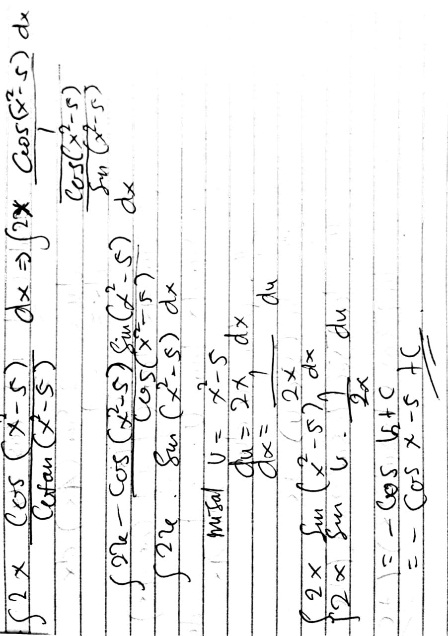 ∫ 2x Cos (x²-5) / Cotan (x²-5) dx ⇒ ∫ 2x Cos(x²-5) / 1 dx
Cos(x²-5) / Sin (x²-5)
∫ 2x - Cos (x²-5) Sin (x²-5) / Cos (x²-5) dx
∫ 2x . Sin (x²-5) dx
misal u = x²-5
du = 2x dx
dx = 1 / 2x du
∫ 2x Sin (x²-5) dx
∫ 2x Sin u . 1 / 2x du
= - Cos u + C
= - Cos x - 5 + C